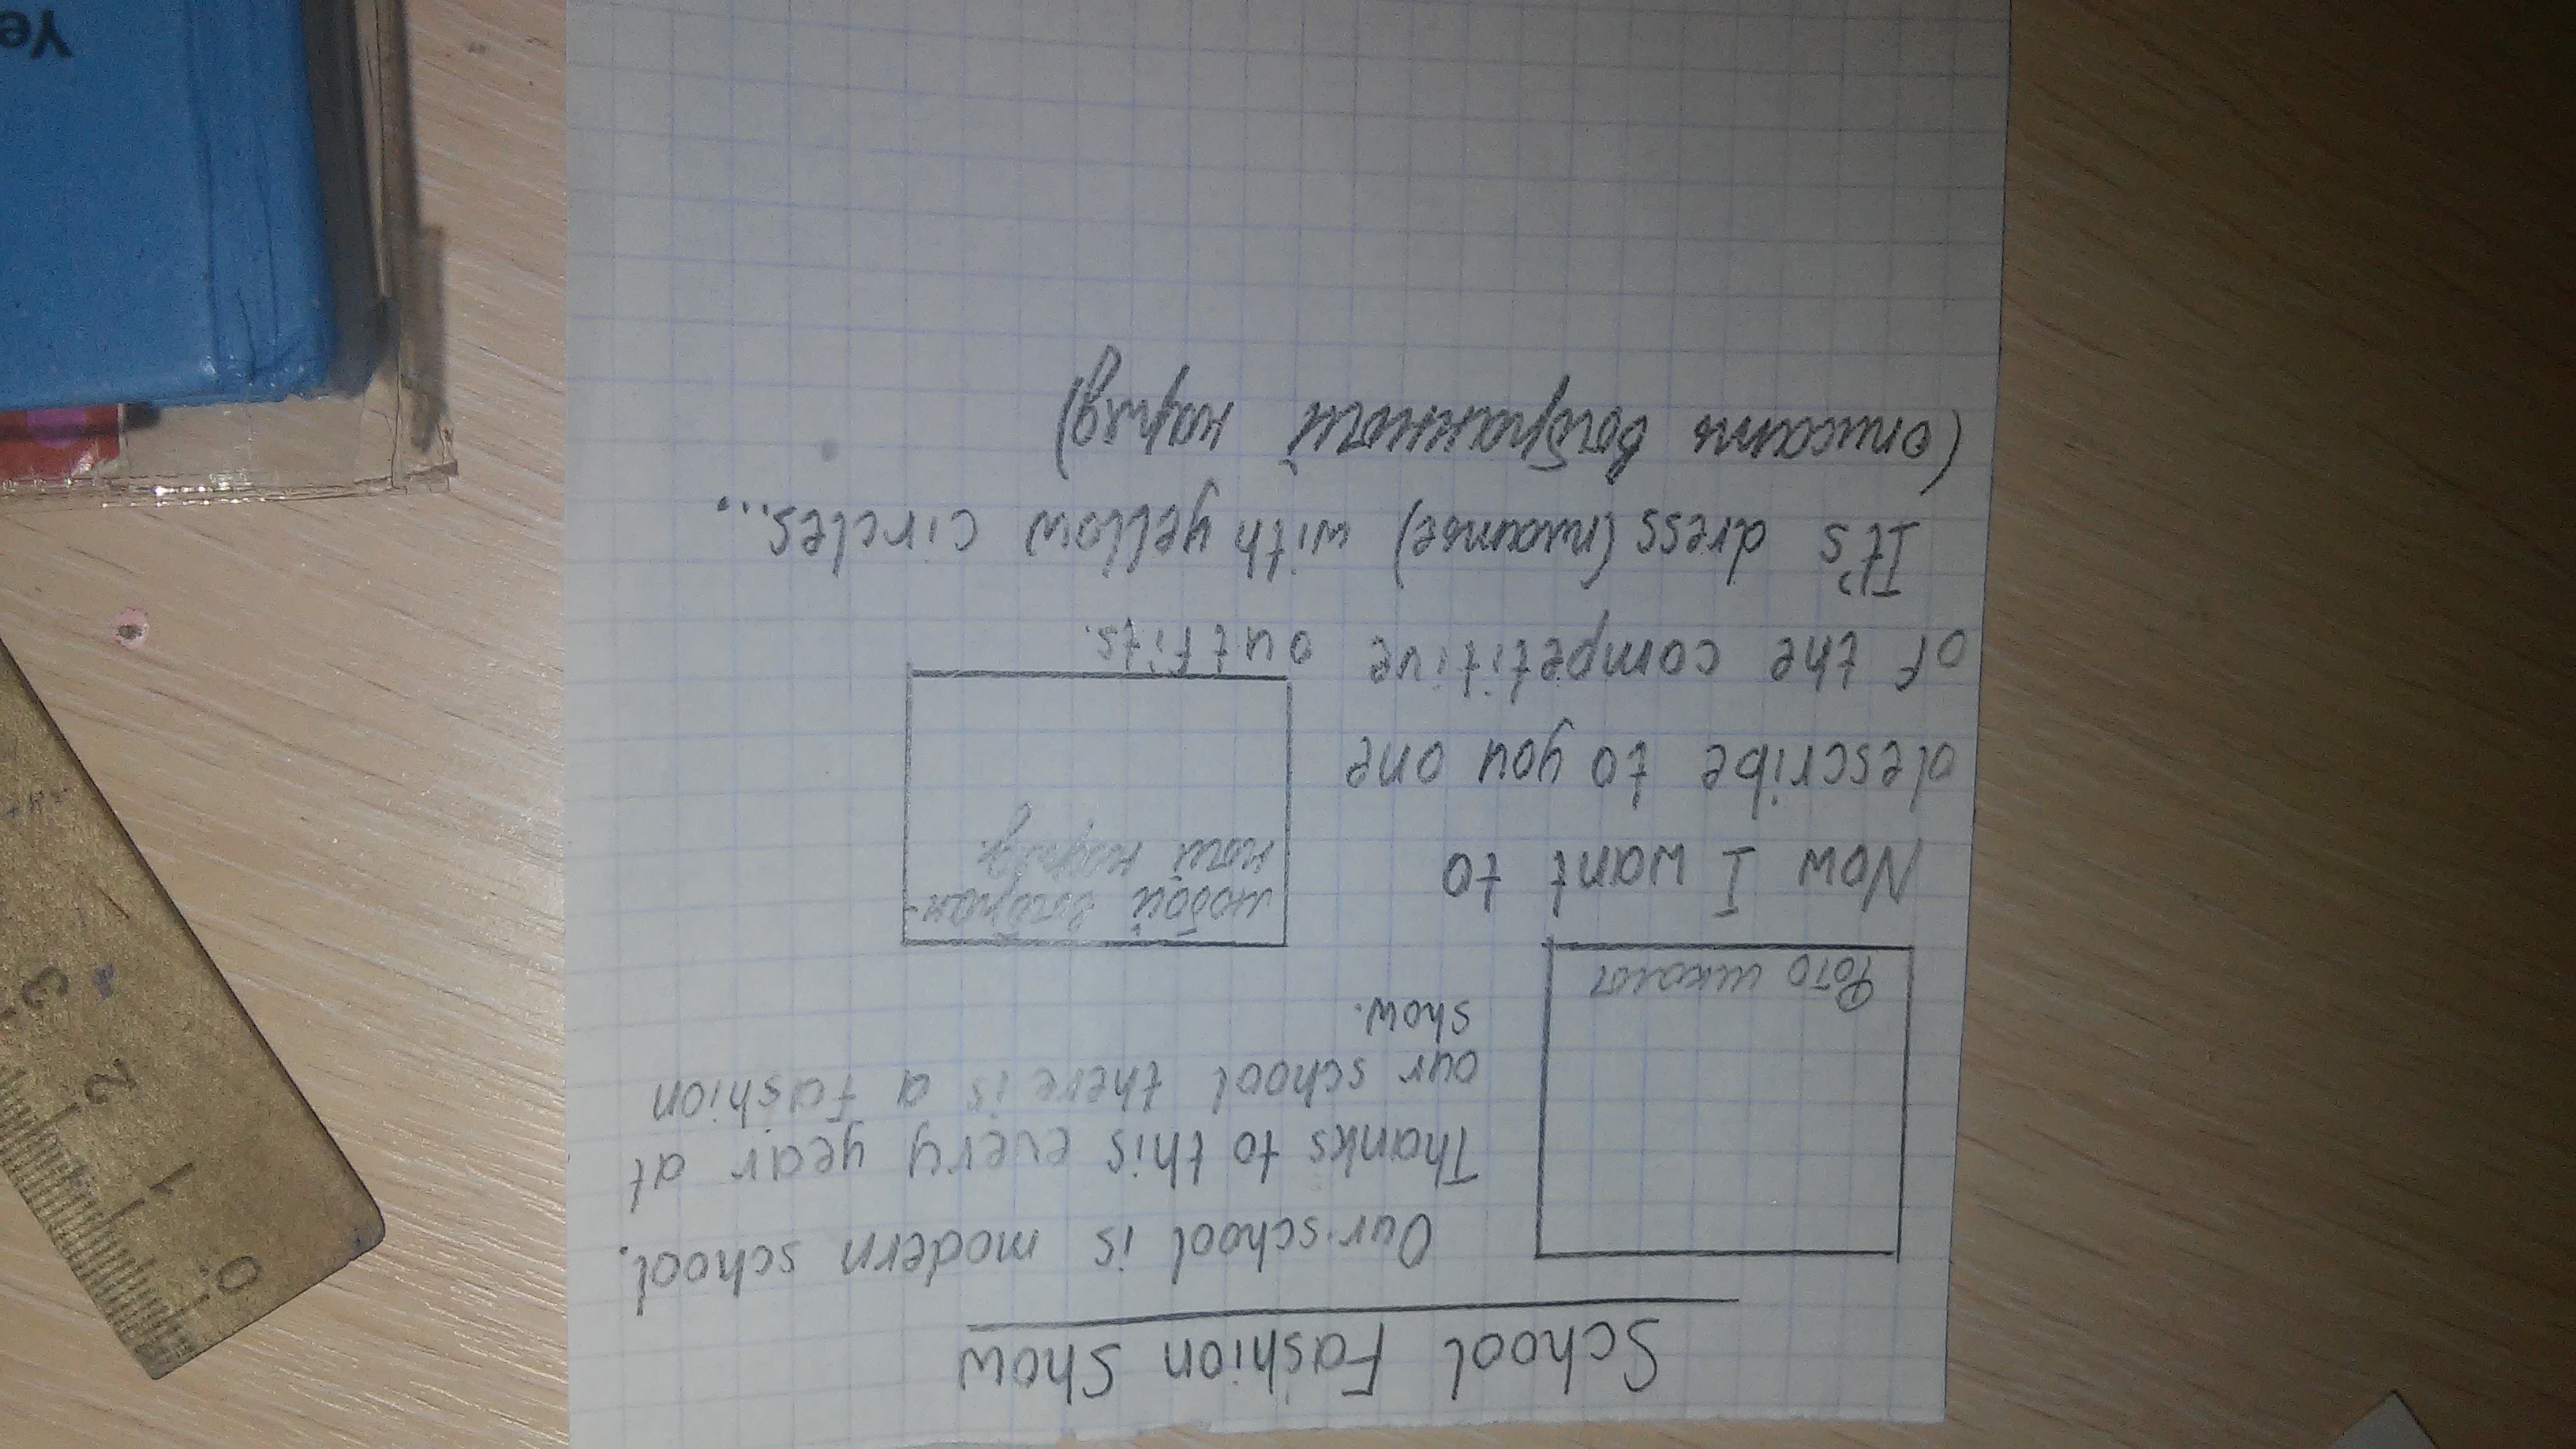 School Fashion Show
Our school is modern school.
Thanks to this every year at
our school there is a fashion
show.
Фото школы
Now I want to
describe to you one
of the competitive outfits.
любой выбран-
ный наряд.
It's dress (платье) with yellow circles...
(описать выбранный наряд)
0 1 2 3
Ye